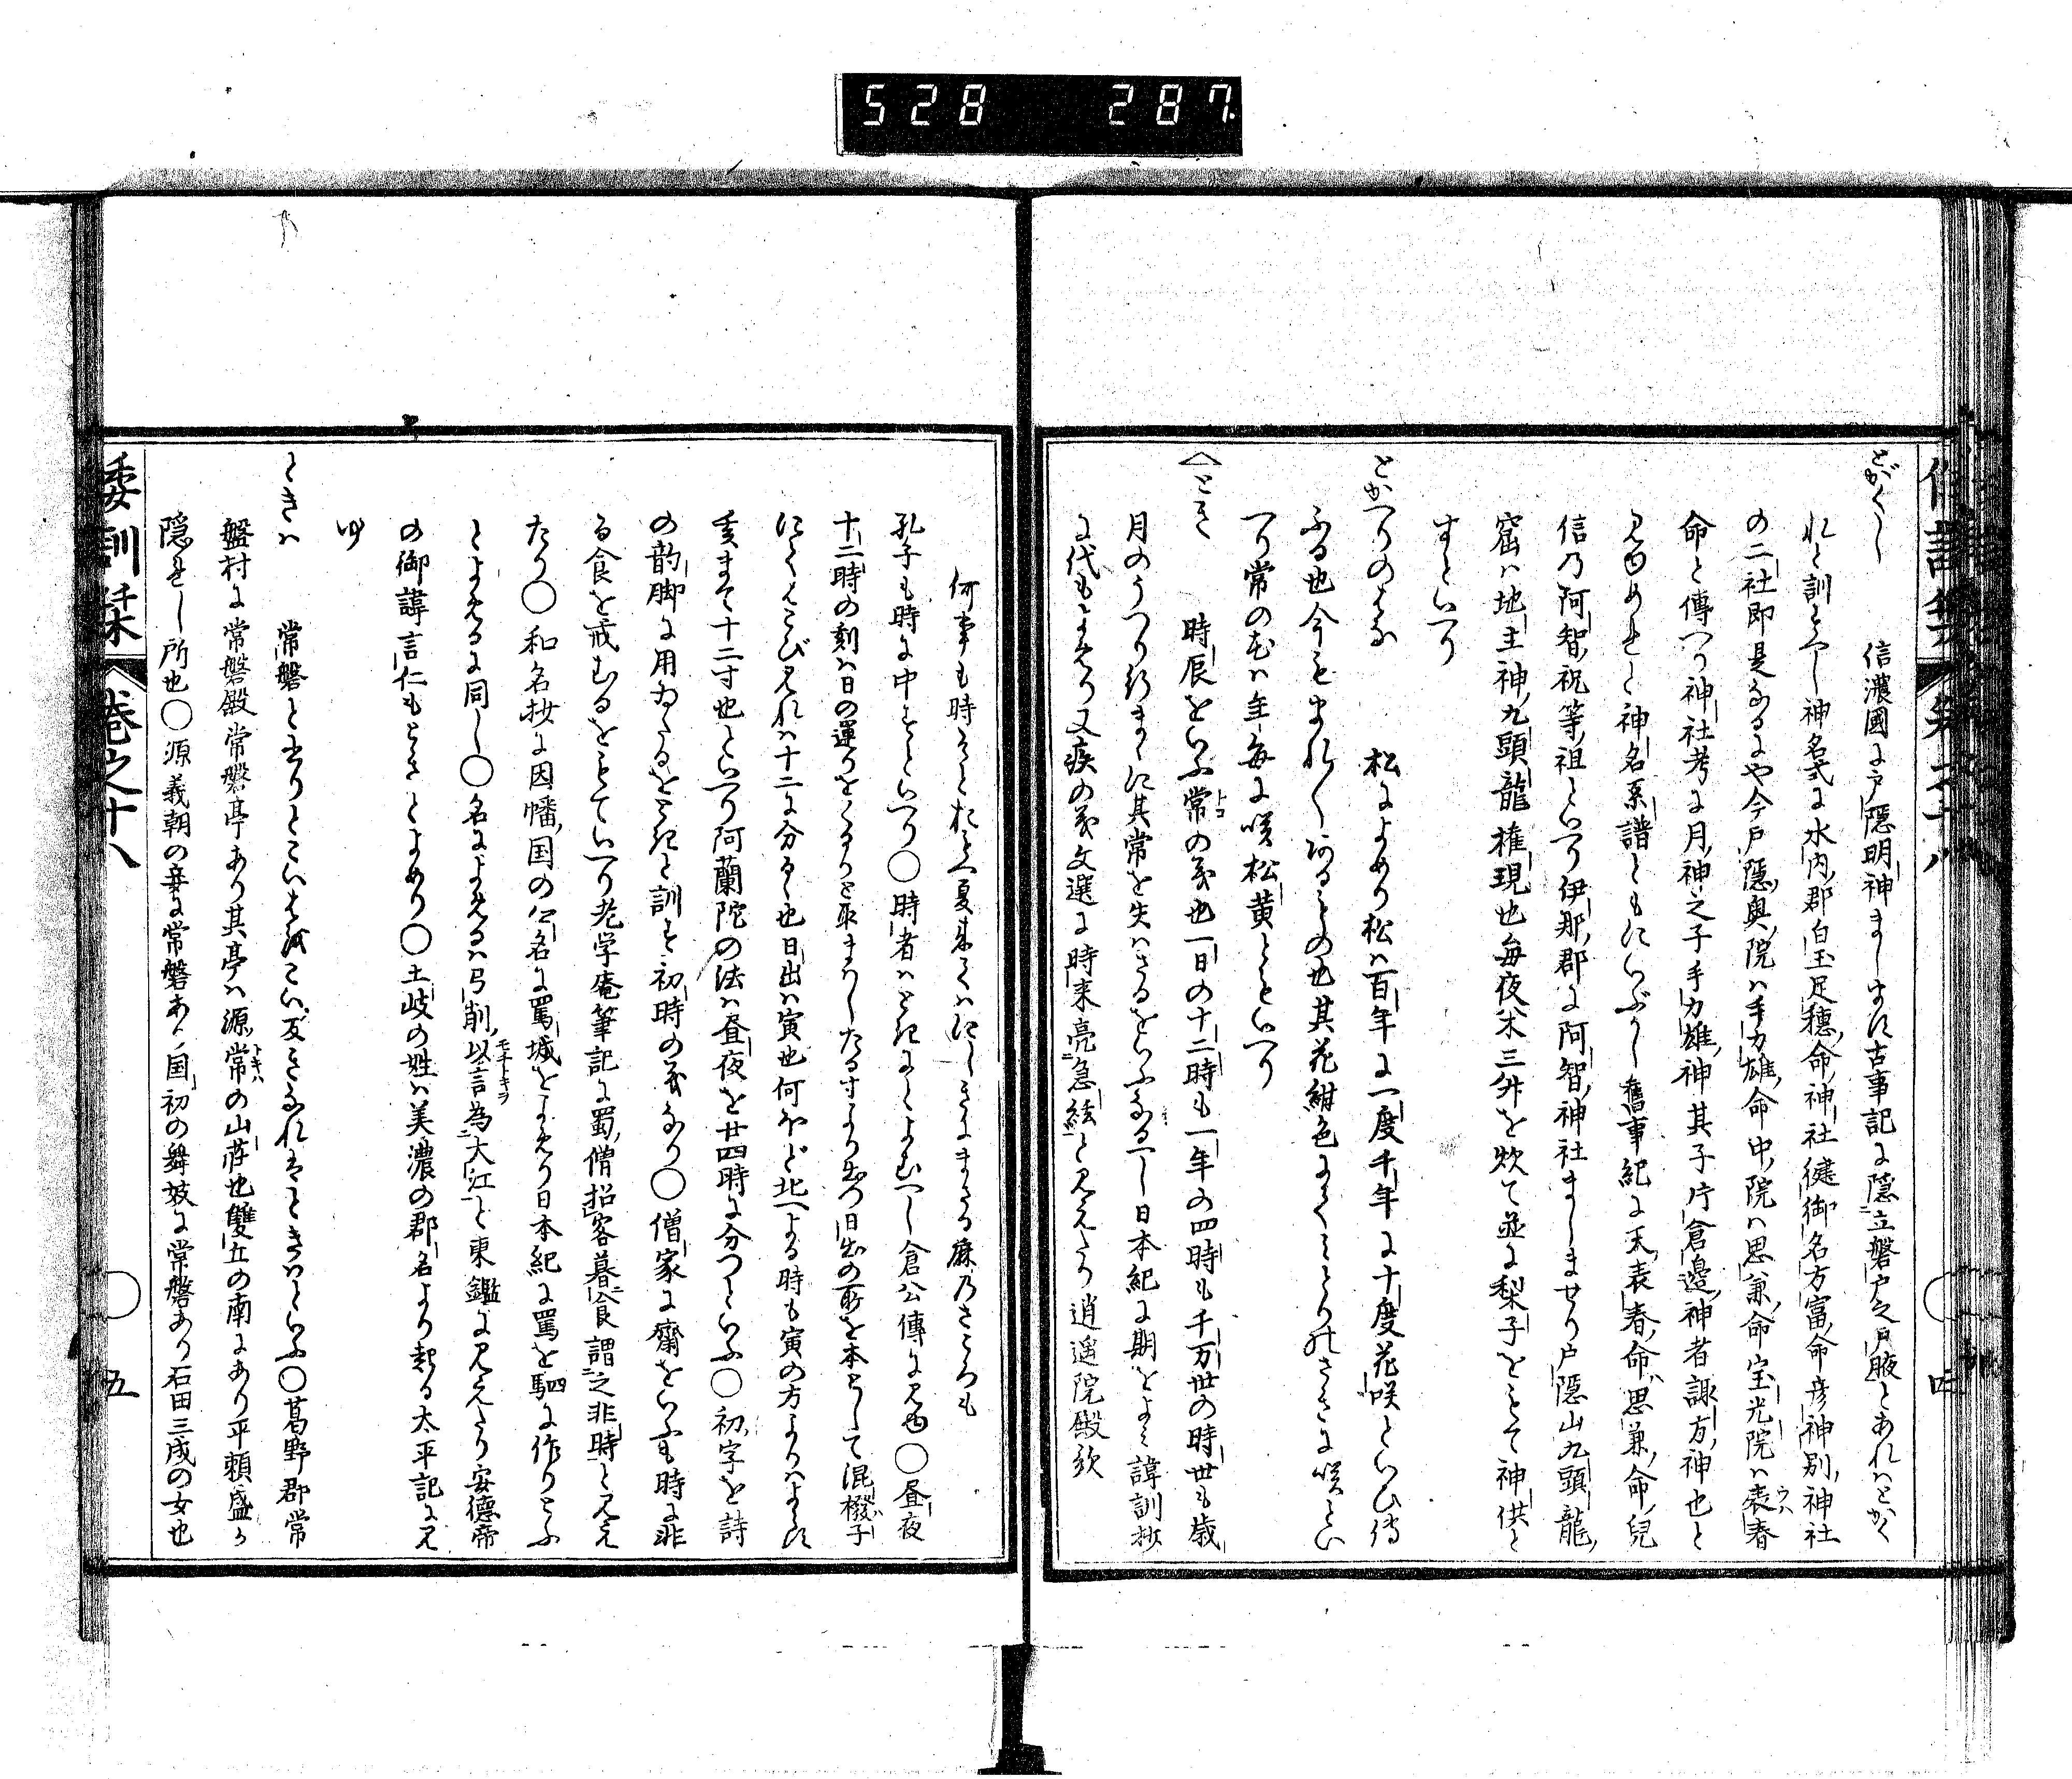 528 287
とがくし 信濃國に戸隠明神ましますは古事記に隠立磐戸之戸腋とあれはとかく
れと訓へし神名式に水内郡白玉足穂命神社健御名方富命彦神別神社
の二社即是なるにや今戸隠奥院は手力雄命中院は思兼命宝光院は表春
命と傳へり神社考に月神之子手力雄神其子片倉邊神者諏方神也と
見ゆめれと神名系譜ともにいぶかし舊事紀に天表春命思兼命兒
信乃阿智祝等祖といへり伊那郡に阿智神社ましませり戸隠山九頭龍
窟は地主神九頭龍権現也毎夜米三舛を炊て並に梨子をもて神供と
すといへり
とかへりのはな 松によめり松は百年に一度千年に十度花咲といひ傳
ふる也今もまれ〳〵あるもの也其花紺色にてみとりのさきに咲とい
へり常の花は年毎に咲松黄ともいへり
とき 時辰をいふ常の義也一日の十二時も一年の四時も千万世の時世も歳
月のうつり行まゝに其常を失はさるをいふなるへし日本紀に期をよみ諱訓抄
に代もよめり又疾の義文選に時来亮急絃と見えたり逍遥院殿歌
何事も時そとおもへ夏来ては錦にまさる麻のさころも
孔子も時に中すといへり○時者はときにとよむへし倉公傳に見ゆ○昼夜
十二時の刻は日の運りをくるりと取まはしたる寸より出つ日出の所を本として混橃子
にてはこび見れは十二に分るゝ也日出は寅也何ほど北へよる時も寅の方よりはよらす
亥まて十二寸也といへり阿蘭陀の法は昼夜を廿四時に分つといふ○初字を詩
の韵脚に用ゐたるをときと訓す初時の義なり○僧家に齋をいふも時に非
る食を戒むるをもていへり老学庵筆記に蜀僧招客暮食謂之非時と見え
たり○和名抄に因幡国の公名に罵城をよめり日本紀に罵を駟に作りとふ
とよめるに同し○名によめるは弓削以言為大江と東鑑に見えたり安德帝
の御諱言仁もときとよめり○土岐の姓は美濃の郡名より起る太平記に見
ゆ
ときは 常磐と書りとこいはほこいなきなれはときはといふ○葛野郡常
盤村に常磐殿常磐亭あり其亭は源常の山荘也雙丘の南にあり平頼盛か
隠れし所也○源義朝の妾に常磐あり国初の舞妓に常磐あり石田三成の女也
倭訓栞 巻之十八 四
倭訓栞 巻之十八 五